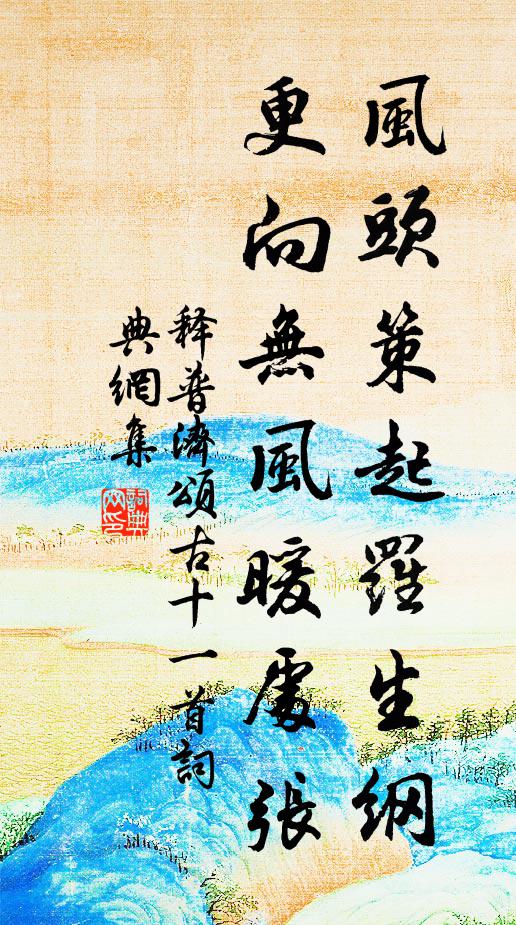 風頭策起羅生網
更向無風暖處張
释普濟頌古十一首詞
典網集
詞典
网印